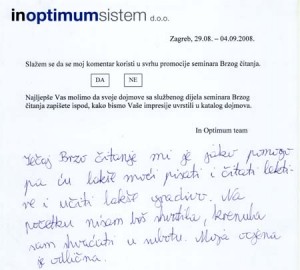 inoptimumsistem d.o.o.
Zagreb, 29.08. – 04.09.2008.
Slažem se da se moj komentar koristi u svrhu promocije seminara Brzog čitanja.
DA NE
Najljepše Vas molimo da svoje dojmove sa službenog dijela seminara Brzog čitanja
zapišete ispod, kako bismo Vaše impresije uvrstili u katalog dojmova.
In Optimum team
Tečaj Brzo čitanje mi je jako pomogo
pa ću lakše moći pisati i čitati lekti-
re i učiti lakše gradivo. Na
početku nisam baš shvatila, krenula
sam shvaćati u subotu. Moja ocjena
je odlična.